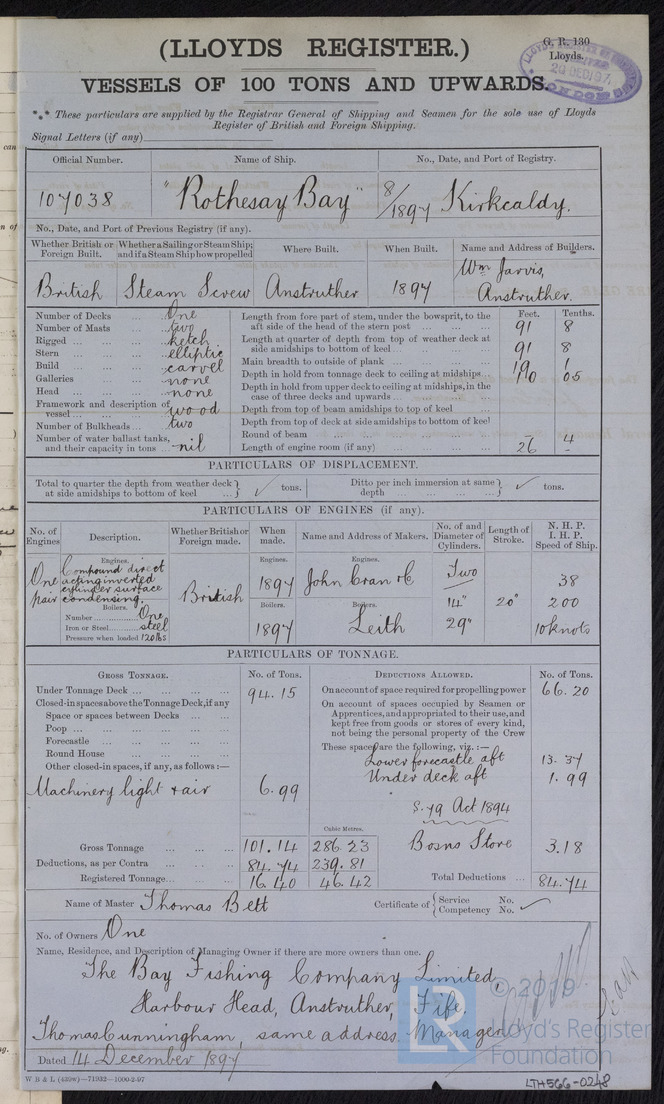 G. R. 130
(LLOYDS REGISTER.)
Lloyds.
LLOYDS REGISTER
20 DEC 97
LONDON
VESSELS OF 100 TONS AND UPWARDS.
*** These particulars are supplied by the Registrar General of Shipping and Seamen for the sole use of Lloyds
Register of British and Foreign Shipping.
Signal Letters (if any)
Official Number. Name of Ship. No., Date, and Port of Registry.
107038 "Rothesay Bay" 8/1897 Kirkcaldy.
No., Date, and Port of Previous Registry (if any).
Whether British or Foreign Built. Whether a Sailing or Steam Ship; and if a Steam Ship how propelled Where Built. When Built. Name and Address of Builders.
British Steam Screw Anstruther 1897 Wm Jarvis, Anstruther.
Number of Decks ... One
Number of Masts ... two
Rigged ... ketch
Stern ... elliptic
Build ... carvel
Galleries ... none
Head ... none
Framework and description of vessel ... wood
Number of Bulkheads ... two
Number of water ballast tanks, and their capacity in tons ... nil
Feet. Tenths.
Length from fore part of stem, under the bowsprit, to the aft side of the head of the stern post ... 91 8
Length at quarter of depth from top of weather deck at side amidships to bottom of keel ... 91 8
Main breadth to outside of plank ... 19 1
Depth in hold from tonnage deck to ceiling at midships ... 10 05
Depth in hold from upper deck to ceiling at midships, in the case of three decks and upwards ...
Depth from top of beam amidships to top of keel ...
Depth from top of deck at side amidships to bottom of keel
Round of beam ...
Length of engine room (if any) ... 26 4
PARTICULARS OF DISPLACEMENT.
Total to quarter the depth from weather deck at side amidships to bottom of keel ... ✓ tons. Ditto per inch immersion at same depth ... ✓ tons.
PARTICULARS OF ENGINES (if any).
No. of Engines. Description. Whether British or Foreign made. When made. Name and Address of Makers. No. of and Diameter of Cylinders. Length of Stroke. N. H. P. I. H. P. Speed of Ship.
Engines. Engines. Engines.
One pair Compound direct acting inverted cylinder surface condensing. British 1897 John Cran & C Two 38
Boilers. Boilers. Boilers.
Number ... One 14" 20" 200
Iron or Steel ... steel 1897 Leith 29" 10 knots
Pressure when loaded 120 lbs
PARTICULARS OF TONNAGE.
GROSS TONNAGE. No. of Tons. DEDUCTIONS ALLOWED. No. of Tons.
Under Tonnage Deck ... 94.15 On account of space required for propelling power 66.20
Closed-in spaces above the Tonnage Deck, if any
Space or spaces between Decks ...
Poop ...
Forecastle ...
Round House ...
Other closed-in spaces, if any, as follows:—
On account of spaces occupied by Seamen or Apprentices, and appropriated to their use, and kept free from goods or stores of every kind, not being the personal property of the Crew
These spaces are the following, viz.:—
Lower forecastle aft 13.37
Under deck aft 1.99
Machinery light & air 6.99
S. 79 Act 1894
Cubic Metres.
Bosns Store 3.18
Gross Tonnage ... 101.14 286.23
Deductions, as per Contra ... 84.74 239.81
Registered Tonnage ... 16.40 46.42 Total Deductions ... 84.74
Name of Master Thomas Bett Certificate of { Service No. Competency No. ✓
No. of Owners One
Name, Residence, and Description of Managing Owner if there are more owners than one.
The Bay Fishing Company Limited,
Harbour Head, Anstruther, Fife.
Thomas Cunningham, same address. Manager
Dated 14 December 1897
W B & L (439w)—71932—1000-2-97
© 2019
LR Lloyd's Register
Foundation
LTH566-0248